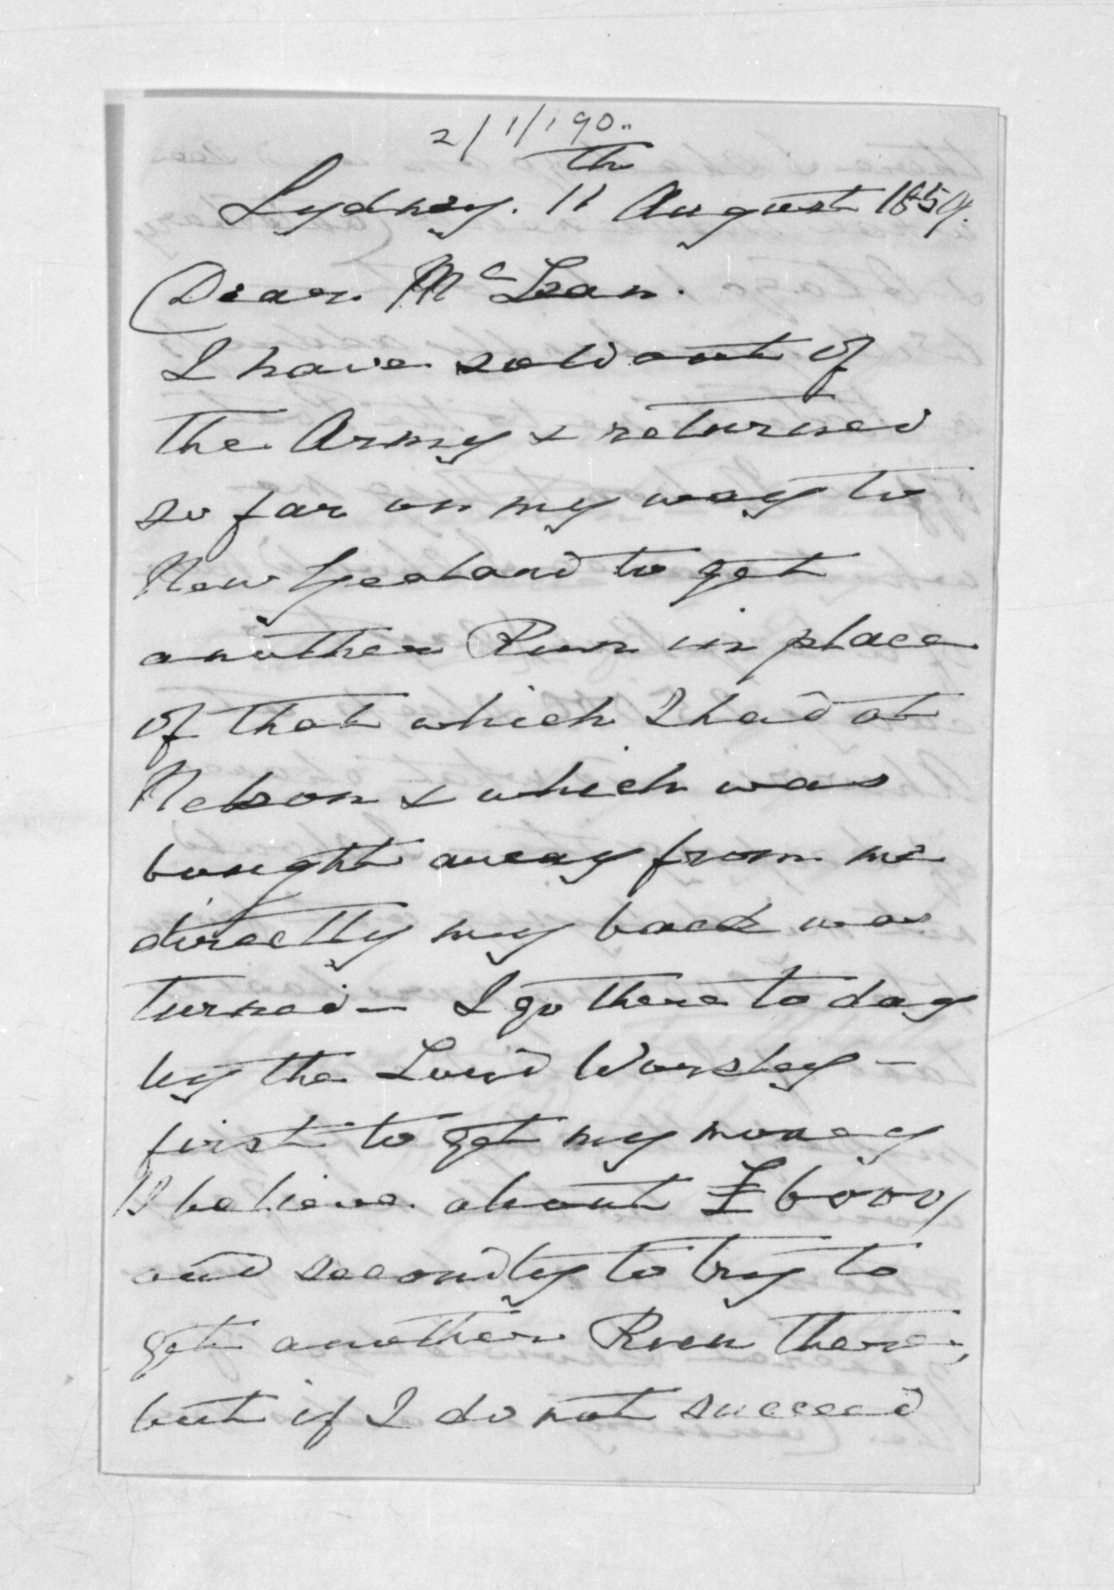 2/1/190..
Sydney. 11th August 1859.
Dear McLean.
I have sold out of
the Army & returned
so far on my way to
New Zealand to get
another Run in place
of that which I had at
Nelson & which was
bought away from me
directly my back was
turned — I go there to day
by the Lord Worsley —
first to get my money
I believe about £6000/
and secondly to try to
get another Run there,
but if I do not succeed